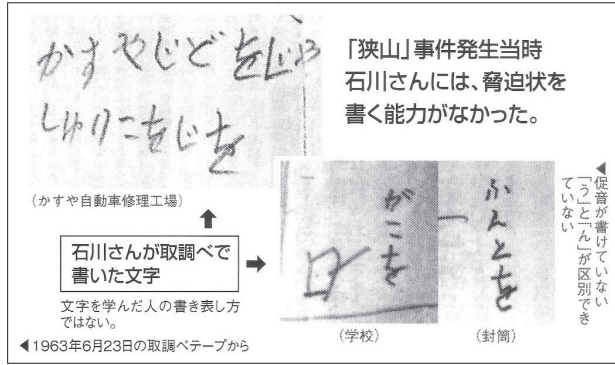 かすやじどをじや
しゆりこをじを
(かすや自動車修理工場)
「狭山」事件発生当時
石川さんには、脅迫状を
書く能力がなかった。
石川さんが取調べで
書いた文字
文字を学んだ人の書き表し方
ではない。
◀1963年6月23日の取調べテープから
がこを
(学校)
ふんとを
(封筒)
◀促音が書けていない
「う」と「ん」が区別でき
ていない